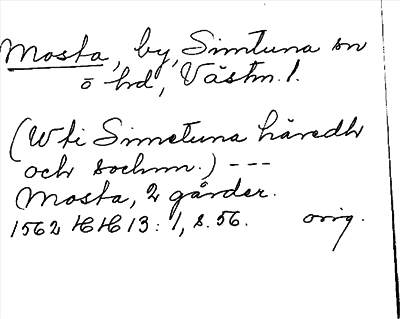 Mosta, by, Simtuna sn
o hd, Västm. l.
(Wti Simetuna häredh
och sochnn.) ---
Mosta, 2 gårder.
1562 HH 13: 1, s. 56. orig.